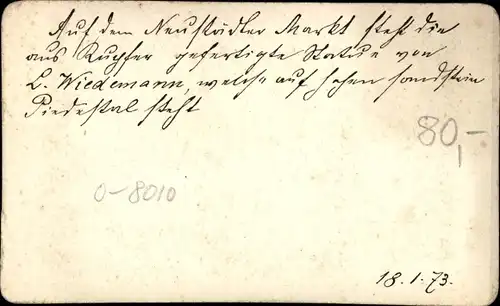 Auf dem Neustädter Markt steht die
aus Kupfer gefertigte Statue von
L. Wiedemann, welche auf hohen sandstein
Piedestal steht
80,-
0-8010
18.1.73.